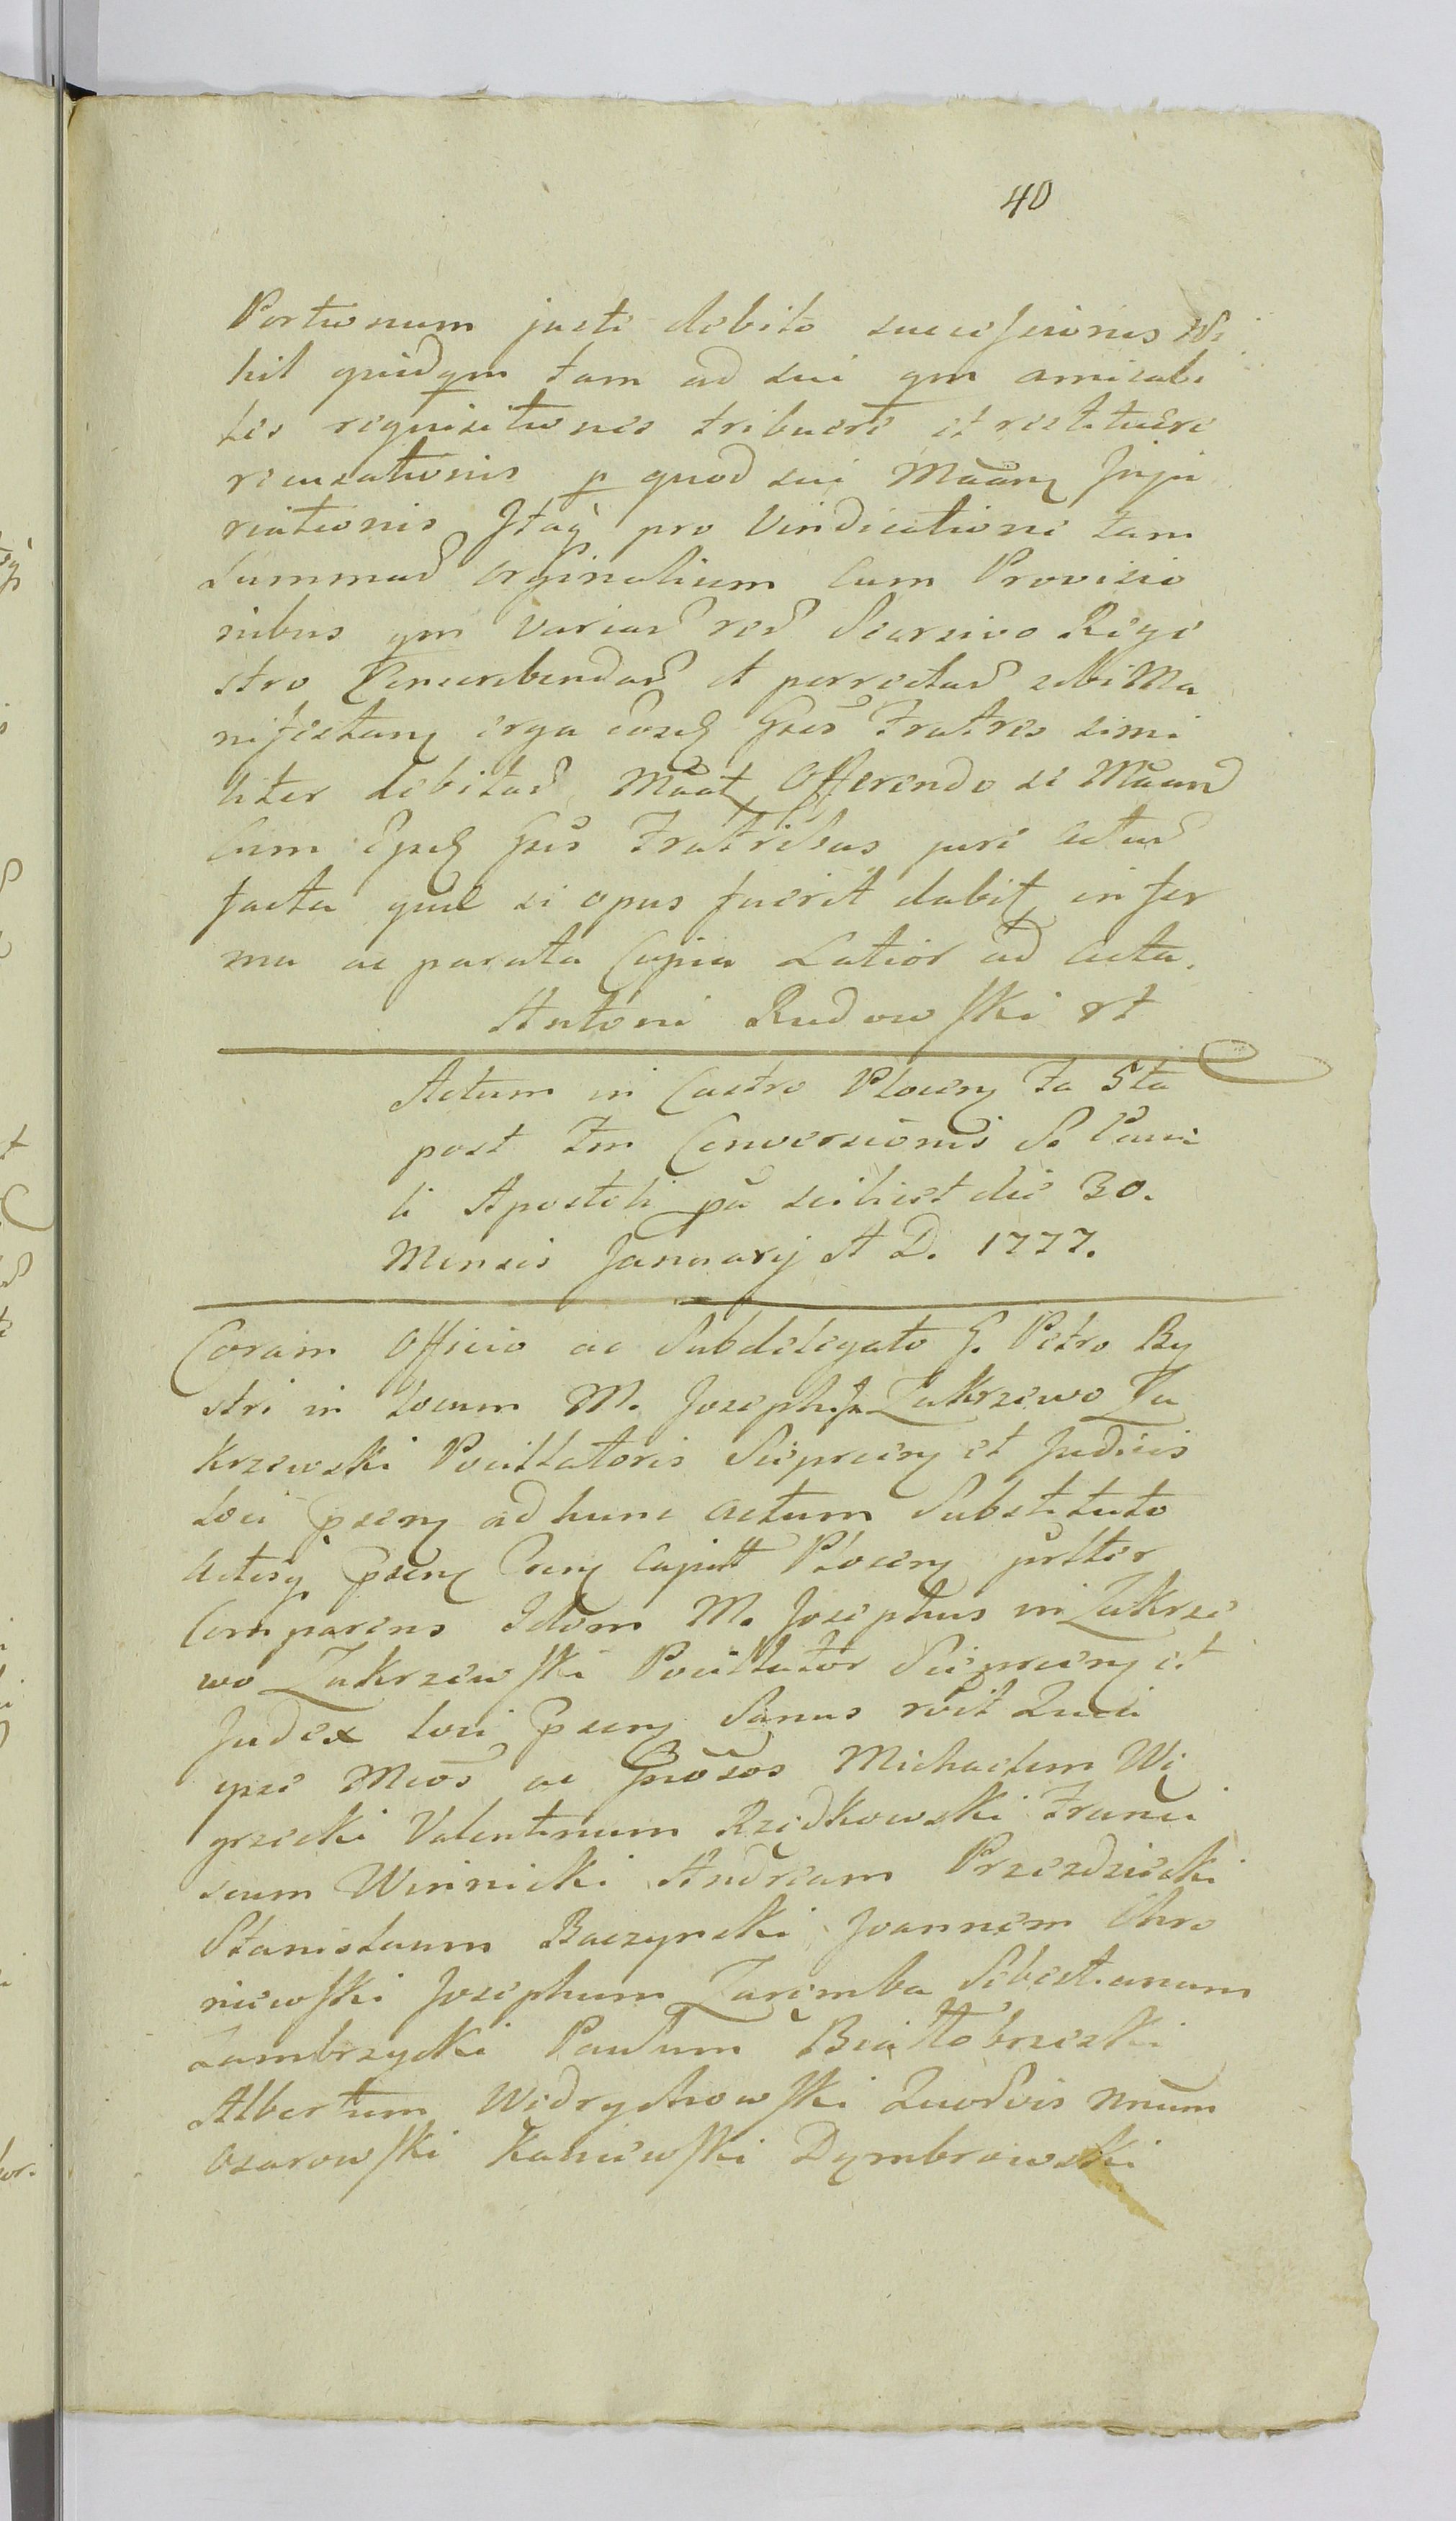 40
Portionum juste debito successionis Ni
hil quidqm tam ad sui qm amicabi
les requisitiones tribuere et restituere
recusationis p quod sui Maan Inju
riationis Itaq pro Vindicatione tam
Summad orginalium cum Provisio
nibus qm variad red Scarsivo Regi
stro Conscribendad et perrectad sibi Ma
nifestan erga eosd Gses Fratres simi
liter debitad Maat Offerendo se Maand
cum Ipsd Gsis Fratribus juri actud
facta que si opus fuerit dabit in for
ma ac parata Copia Latior ad acta.
Antoni Rudowski
Actum in Castro Plocen fa 5ta
post fm Conversionis S. Pau
li Apostoli pa scilicet die 30.
Mensis January A D. 1777.
Coram Officio ac Subdelegato G. Petro By
stri in locum M. Josephi in Zakrzewo Za
krzewski Pocillatoris Sieprcen et Judicis
loci psen ad hunc actum Substituto
actisq psen Cren Capitt Plocen prltter
Comparens Idem M. Josephus in Zakrze
wo Zakrzewski Pocillator Sieprcen et
Judex loci psen Sanus rvit Quia
ipse Mcos ac Gnosos Michaelem Wę
grzecki Valentinum Rzędkowski Franci
scum Winnicki Andream Przezdziecki
Stanislaum Baczynski Joannem Chro
niewski Josephum Zaremba Sebestianum
Zambrzycki Paulum Białłobrzeski
Albertum Wędrychowski Quodvis nnum
Ozarowski Kaniewski Dymbrowski